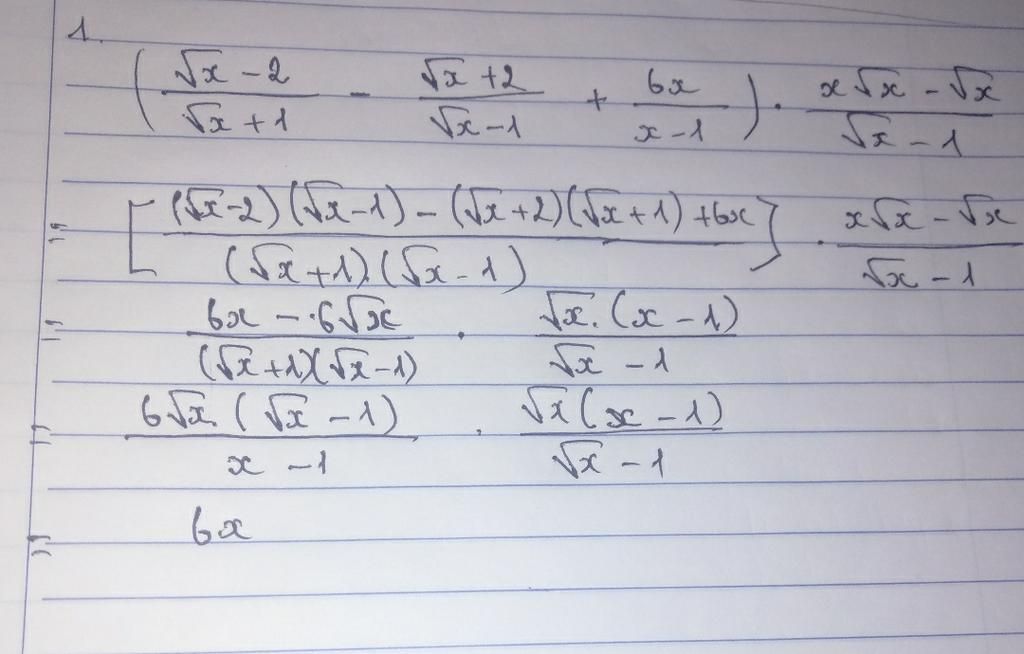 1.
( (√x - 2)/(√x + 1) - (√x + 2)/(√x - 1) + 6x/(x - 1) ) · (x√x - √x)/(√x - 1)
= [ ((√x - 2)(√x - 1) - (√x + 2)(√x + 1) + 6x)/((√x + 1).(√x - 1)) ] · (x√x - √x)/(√x - 1)
= (6x - 6√x)/((√x + 1)(√x - 1)) · (√x.(x - 1))/(√x - 1)
= (6√x.(√x - 1))/(x - 1) · (√x(x - 1))/(√x - 1)
= 6x